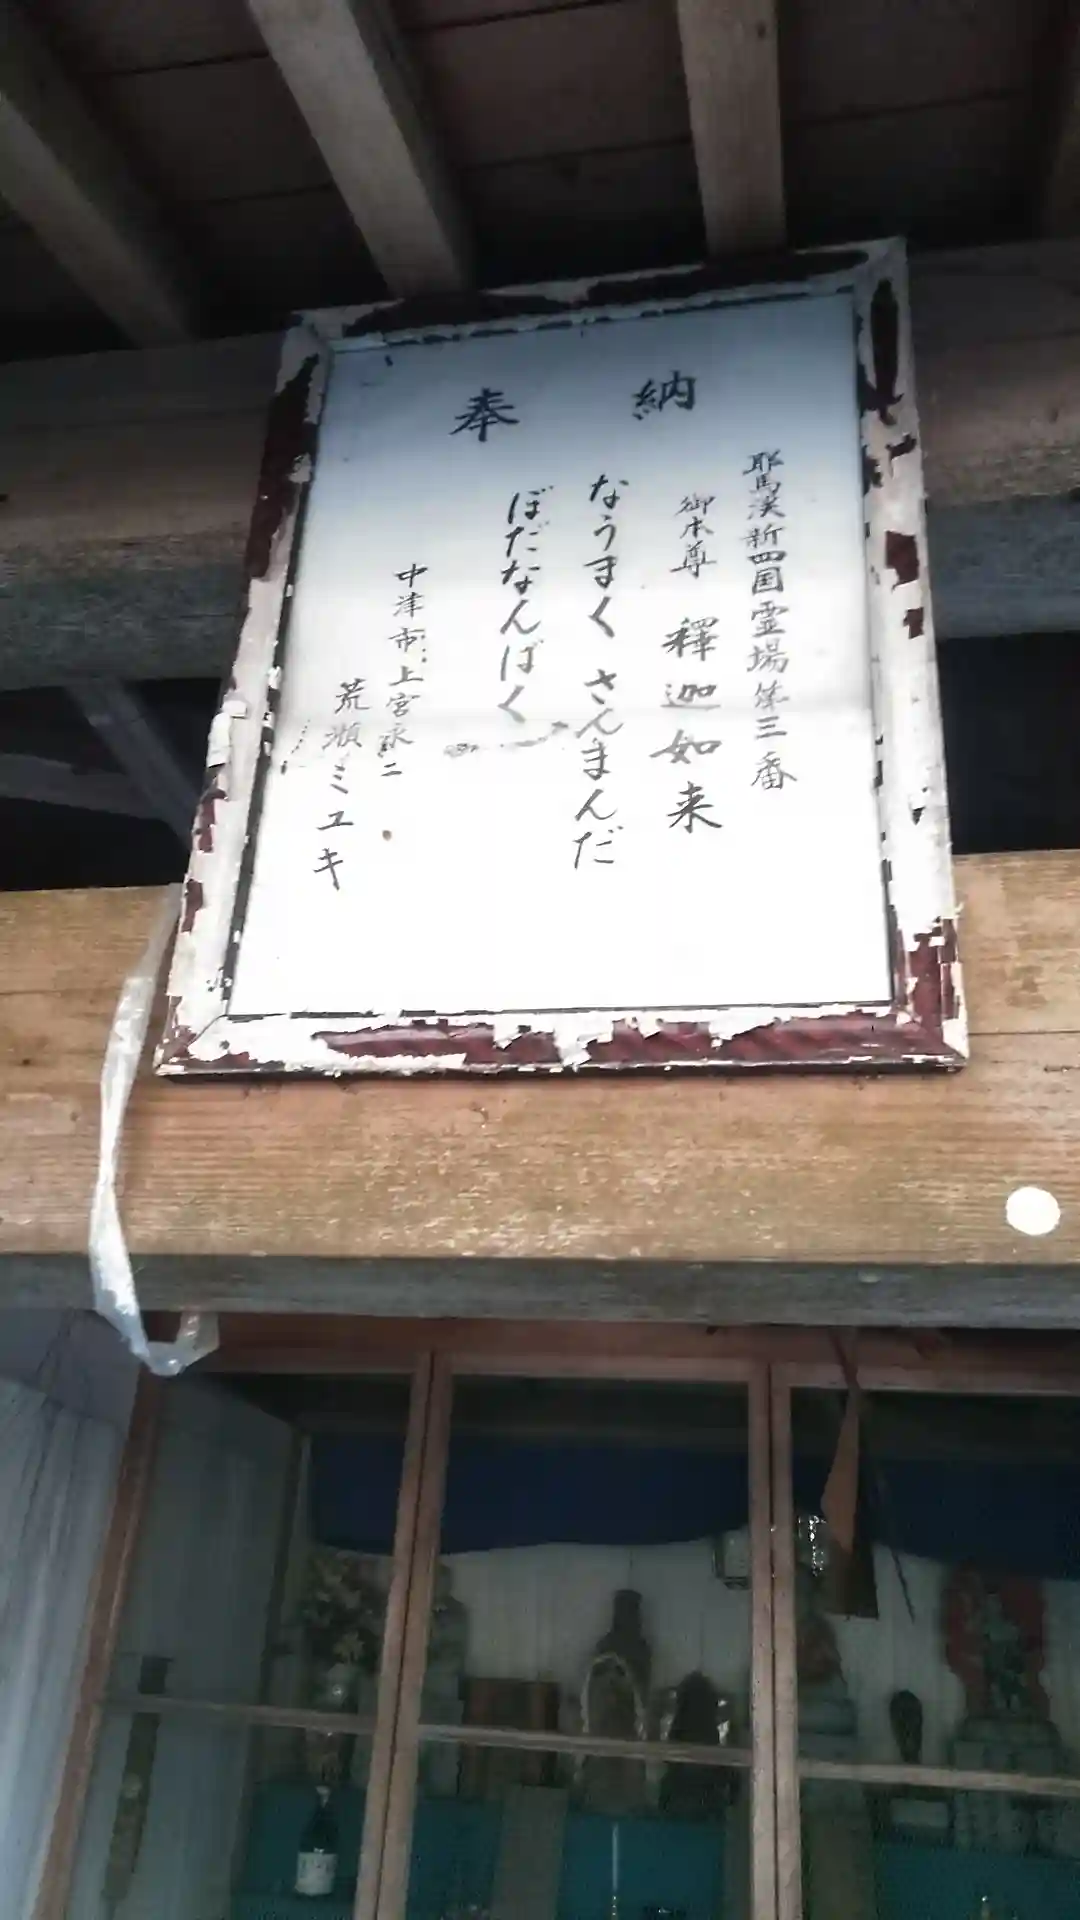 奉納
耶馬渓新四国霊場第三番
御本尊 釋迦如来
なうまく さんまんだ
ぼだなんばく
中津市上宮永二
荒瀬ミユキ